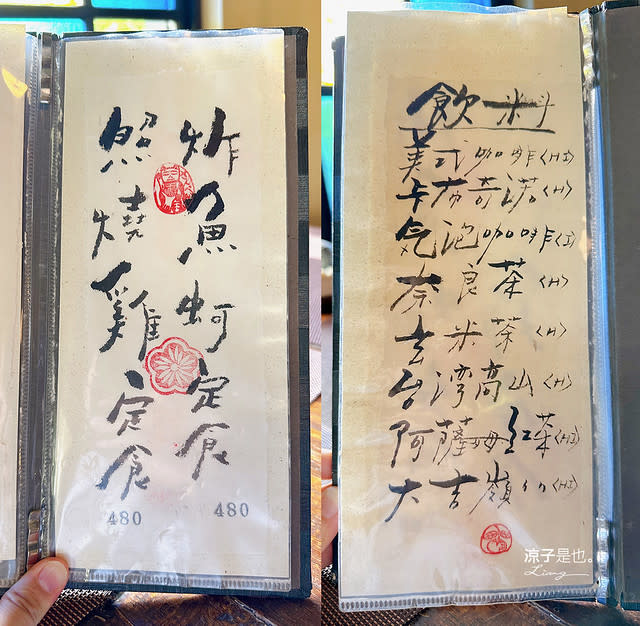 炸魚蚵定食
480
照燒雞定食
480
飲料
美式咖啡<HI>
卡布奇諾<H>
気泡咖啡<I>
奈良茶<H>
玄米茶<H>
台湾高山<H>
阿薩姆紅茶<HI>
大吉嶺 <HI>
涼子是也。
Ling